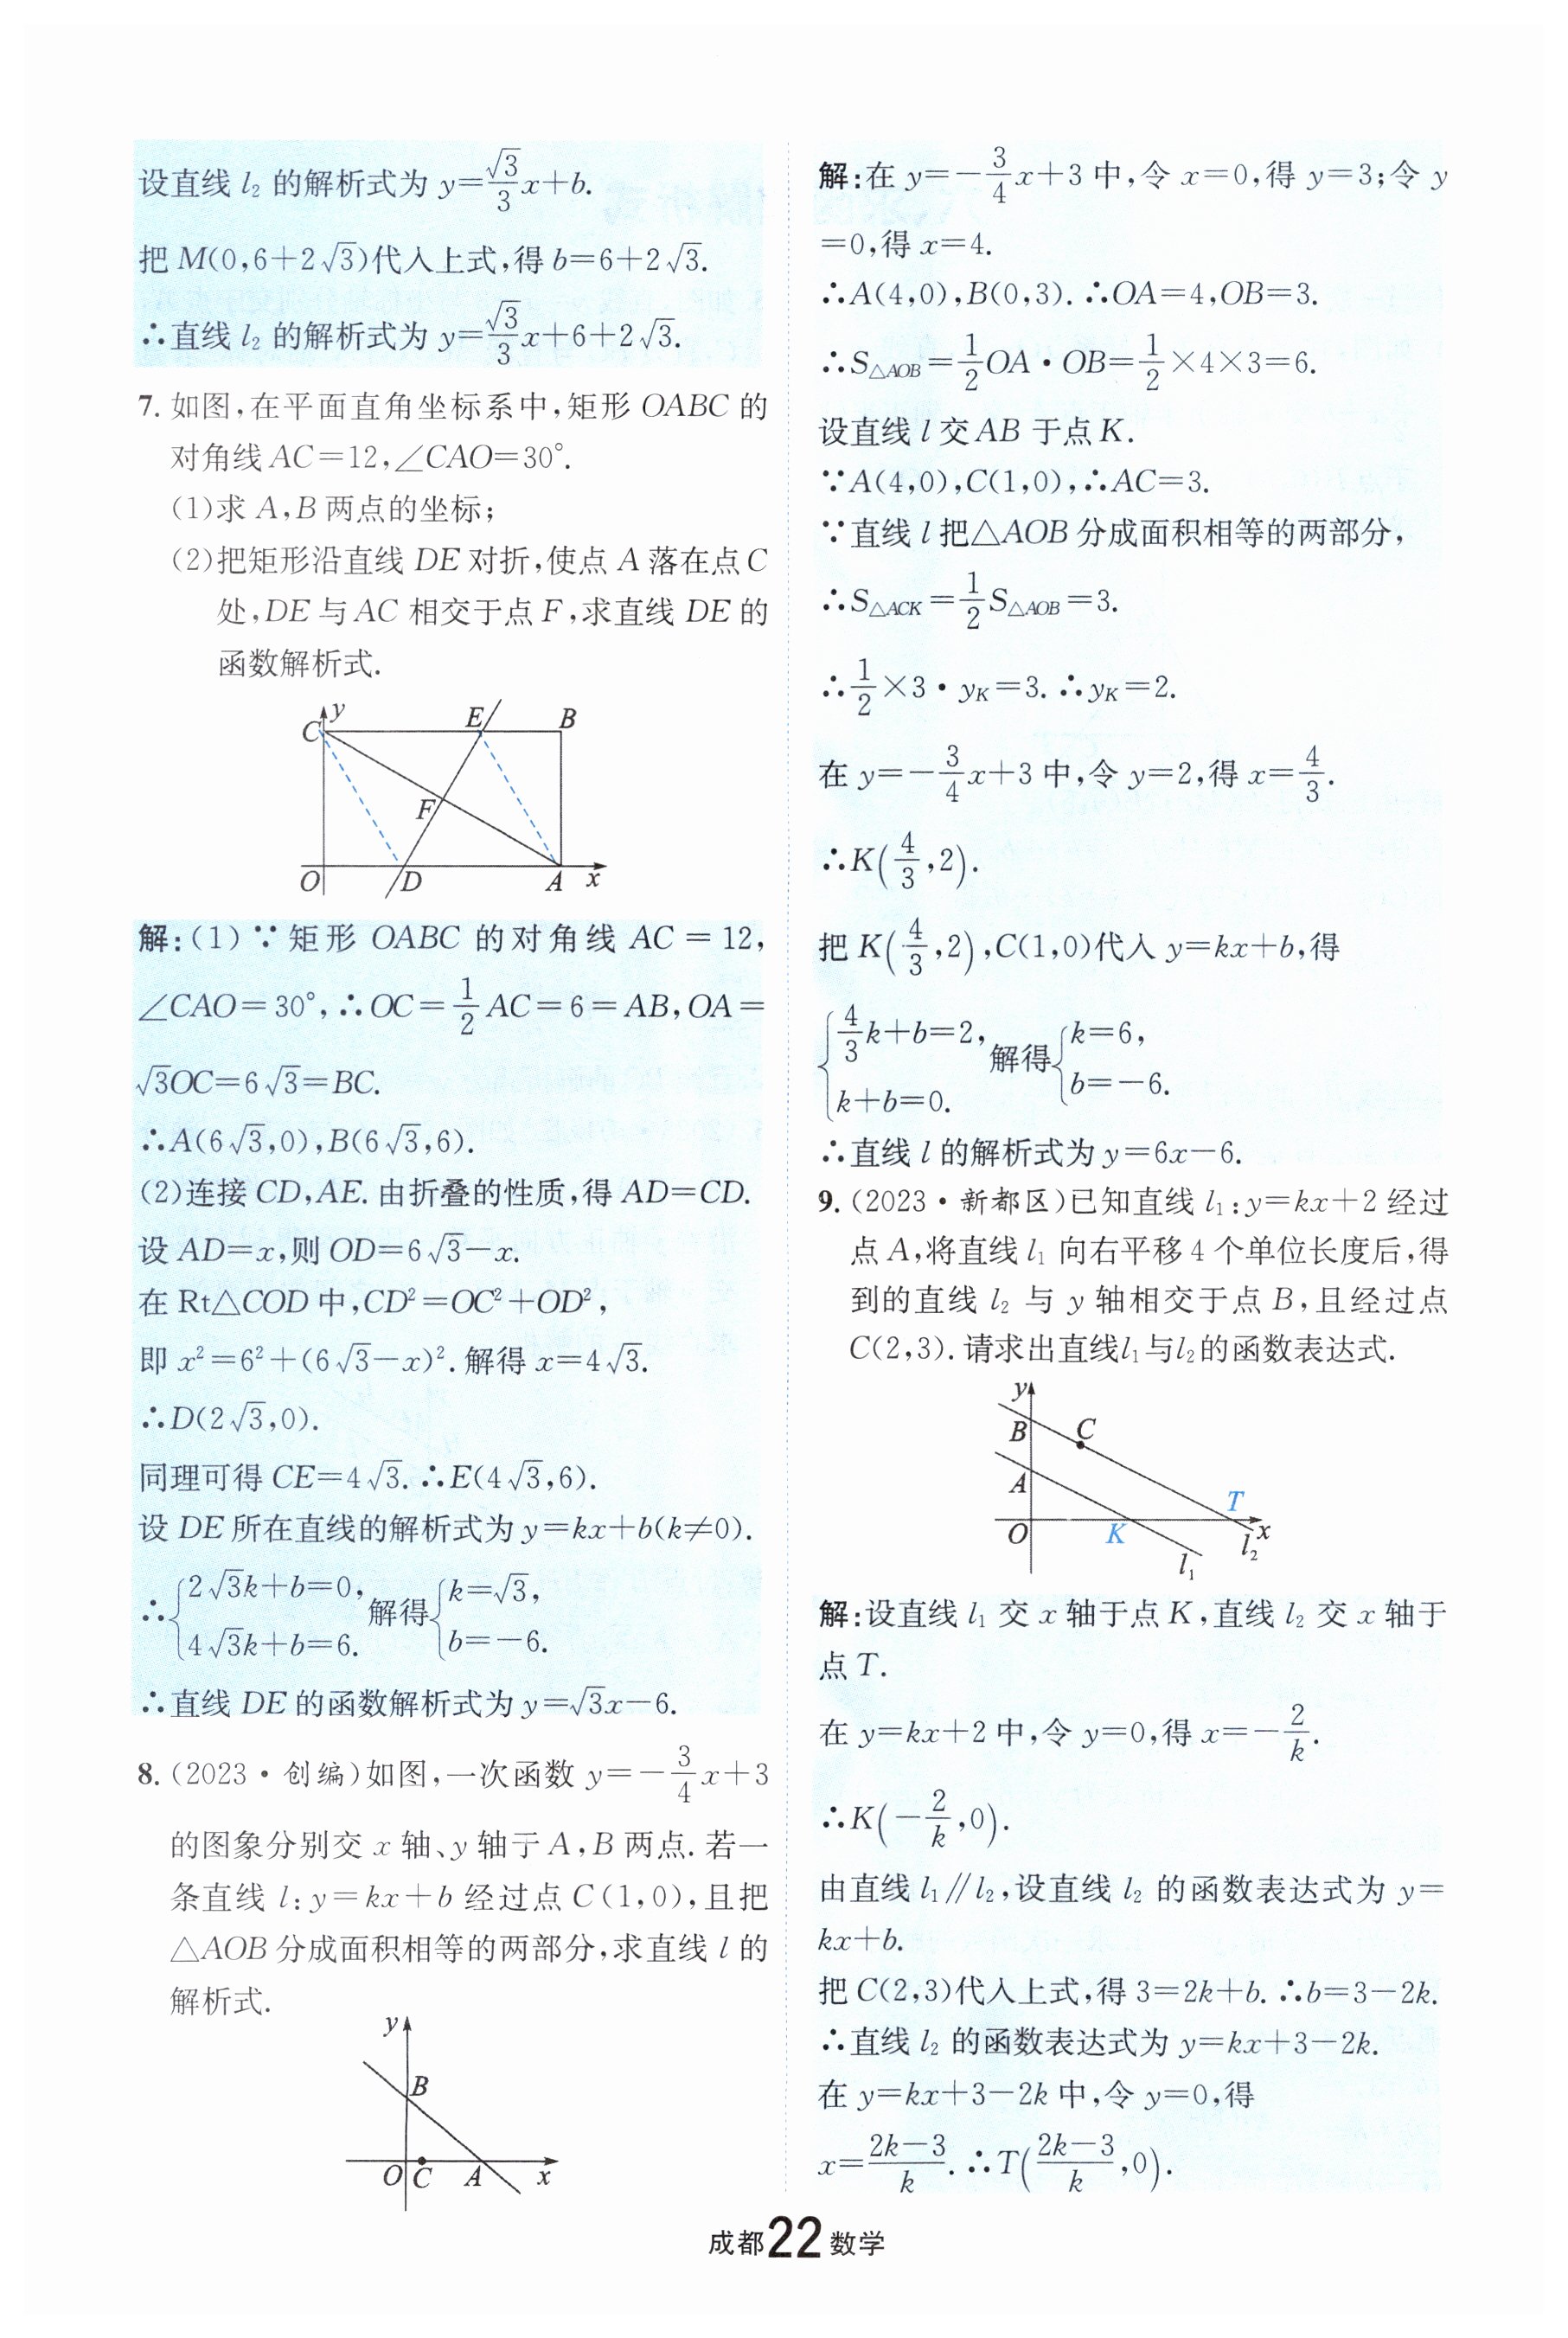 设直线 l₂ 的解析式为 y=√3/3x+b.
把 M(0,6+2√3)代入上式,得 b=6+2√3.
∴直线 l₂ 的解析式为 y=√3/3x+6+2√3.
7. 如图,在平面直角坐标系中,矩形 OABC 的
对角线 AC=12,∠CAO=30°.
(1)求 A,B 两点的坐标;
(2)把矩形沿直线 DE 对折,使点 A 落在点 C
处,DE 与 AC 相交于点 F,求直线 DE 的
函数解析式.
C y E B
F
O D A x
解:(1)∵矩形 OABC 的对角线 AC=12,
∠CAO=30°,∴OC=1/2AC=6=AB,OA=
√3OC=6√3=BC.
∴A(6√3,0),B(6√3,6).
(2)连接 CD,AE. 由折叠的性质,得 AD=CD.
设 AD=x,则 OD=6√3-x.
在 Rt△COD 中,CD²=OC²+OD²,
即 x²=6²+(6√3-x)². 解得 x=4√3.
∴D(2√3,0).
同理可得 CE=4√3. ∴E(4√3,6).
设 DE 所在直线的解析式为 y=kx+b(k≠0).
∴{2√3k+b=0, 4√3k+b=6. 解得{k=√3, b=-6.
∴直线 DE 的函数解析式为 y=√3x-6.
8. (2023·创编)如图,一次函数 y=-3/4x+3
的图象分别交 x 轴、y 轴于 A,B 两点. 若一
条直线 l:y=kx+b 经过点 C(1,0),且把
△AOB 分成面积相等的两部分,求直线 l 的
解析式.
y
B
O C A x
解:在 y=-3/4x+3 中,令 x=0,得 y=3;令 y
=0,得 x=4.
∴A(4,0),B(0,3). ∴OA=4,OB=3.
∴S△AOB=1/2OA·OB=1/2×4×3=6.
设直线 l 交 AB 于点 K.
∵A(4,0),C(1,0),∴AC=3.
∵直线 l 把△AOB 分成面积相等的两部分,
∴S△ACK=1/2S△AOB=3.
∴1/2×3·yK=3. ∴yK=2.
在 y=-3/4x+3 中,令 y=2,得 x=4/3.
∴K(4/3,2).
把 K(4/3,2),C(1,0)代入 y=kx+b,得
{4/3k+b=2, k+b=0. 解得{k=6, b=-6.
∴直线 l 的解析式为 y=6x-6.
9. (2023·新都区)已知直线 l₁:y=kx+2 经过
点 A,将直线 l₁ 向右平移 4 个单位长度后,得
到的直线 l₂ 与 y 轴相交于点 B,且经过点
C(2,3). 请求出直线l₁与l₂的函数表达式.
y
B C
A
T
O K x
l₁ l₂
解:设直线 l₁ 交 x 轴于点 K,直线 l₂ 交 x 轴于
点 T.
在 y=kx+2 中,令 y=0,得 x=-2/k.
∴K(-2/k,0).
由直线 l₁∥l₂,设直线 l₂ 的函数表达式为 y=
kx+b.
把 C(2,3)代入上式,得 3=2k+b. ∴b=3-2k.
∴直线 l₂ 的函数表达式为 y=kx+3-2k.
在 y=kx+3-2k 中,令 y=0,得
x=(2k-3)/k. ∴T((2k-3)/k,0).
成都22数学